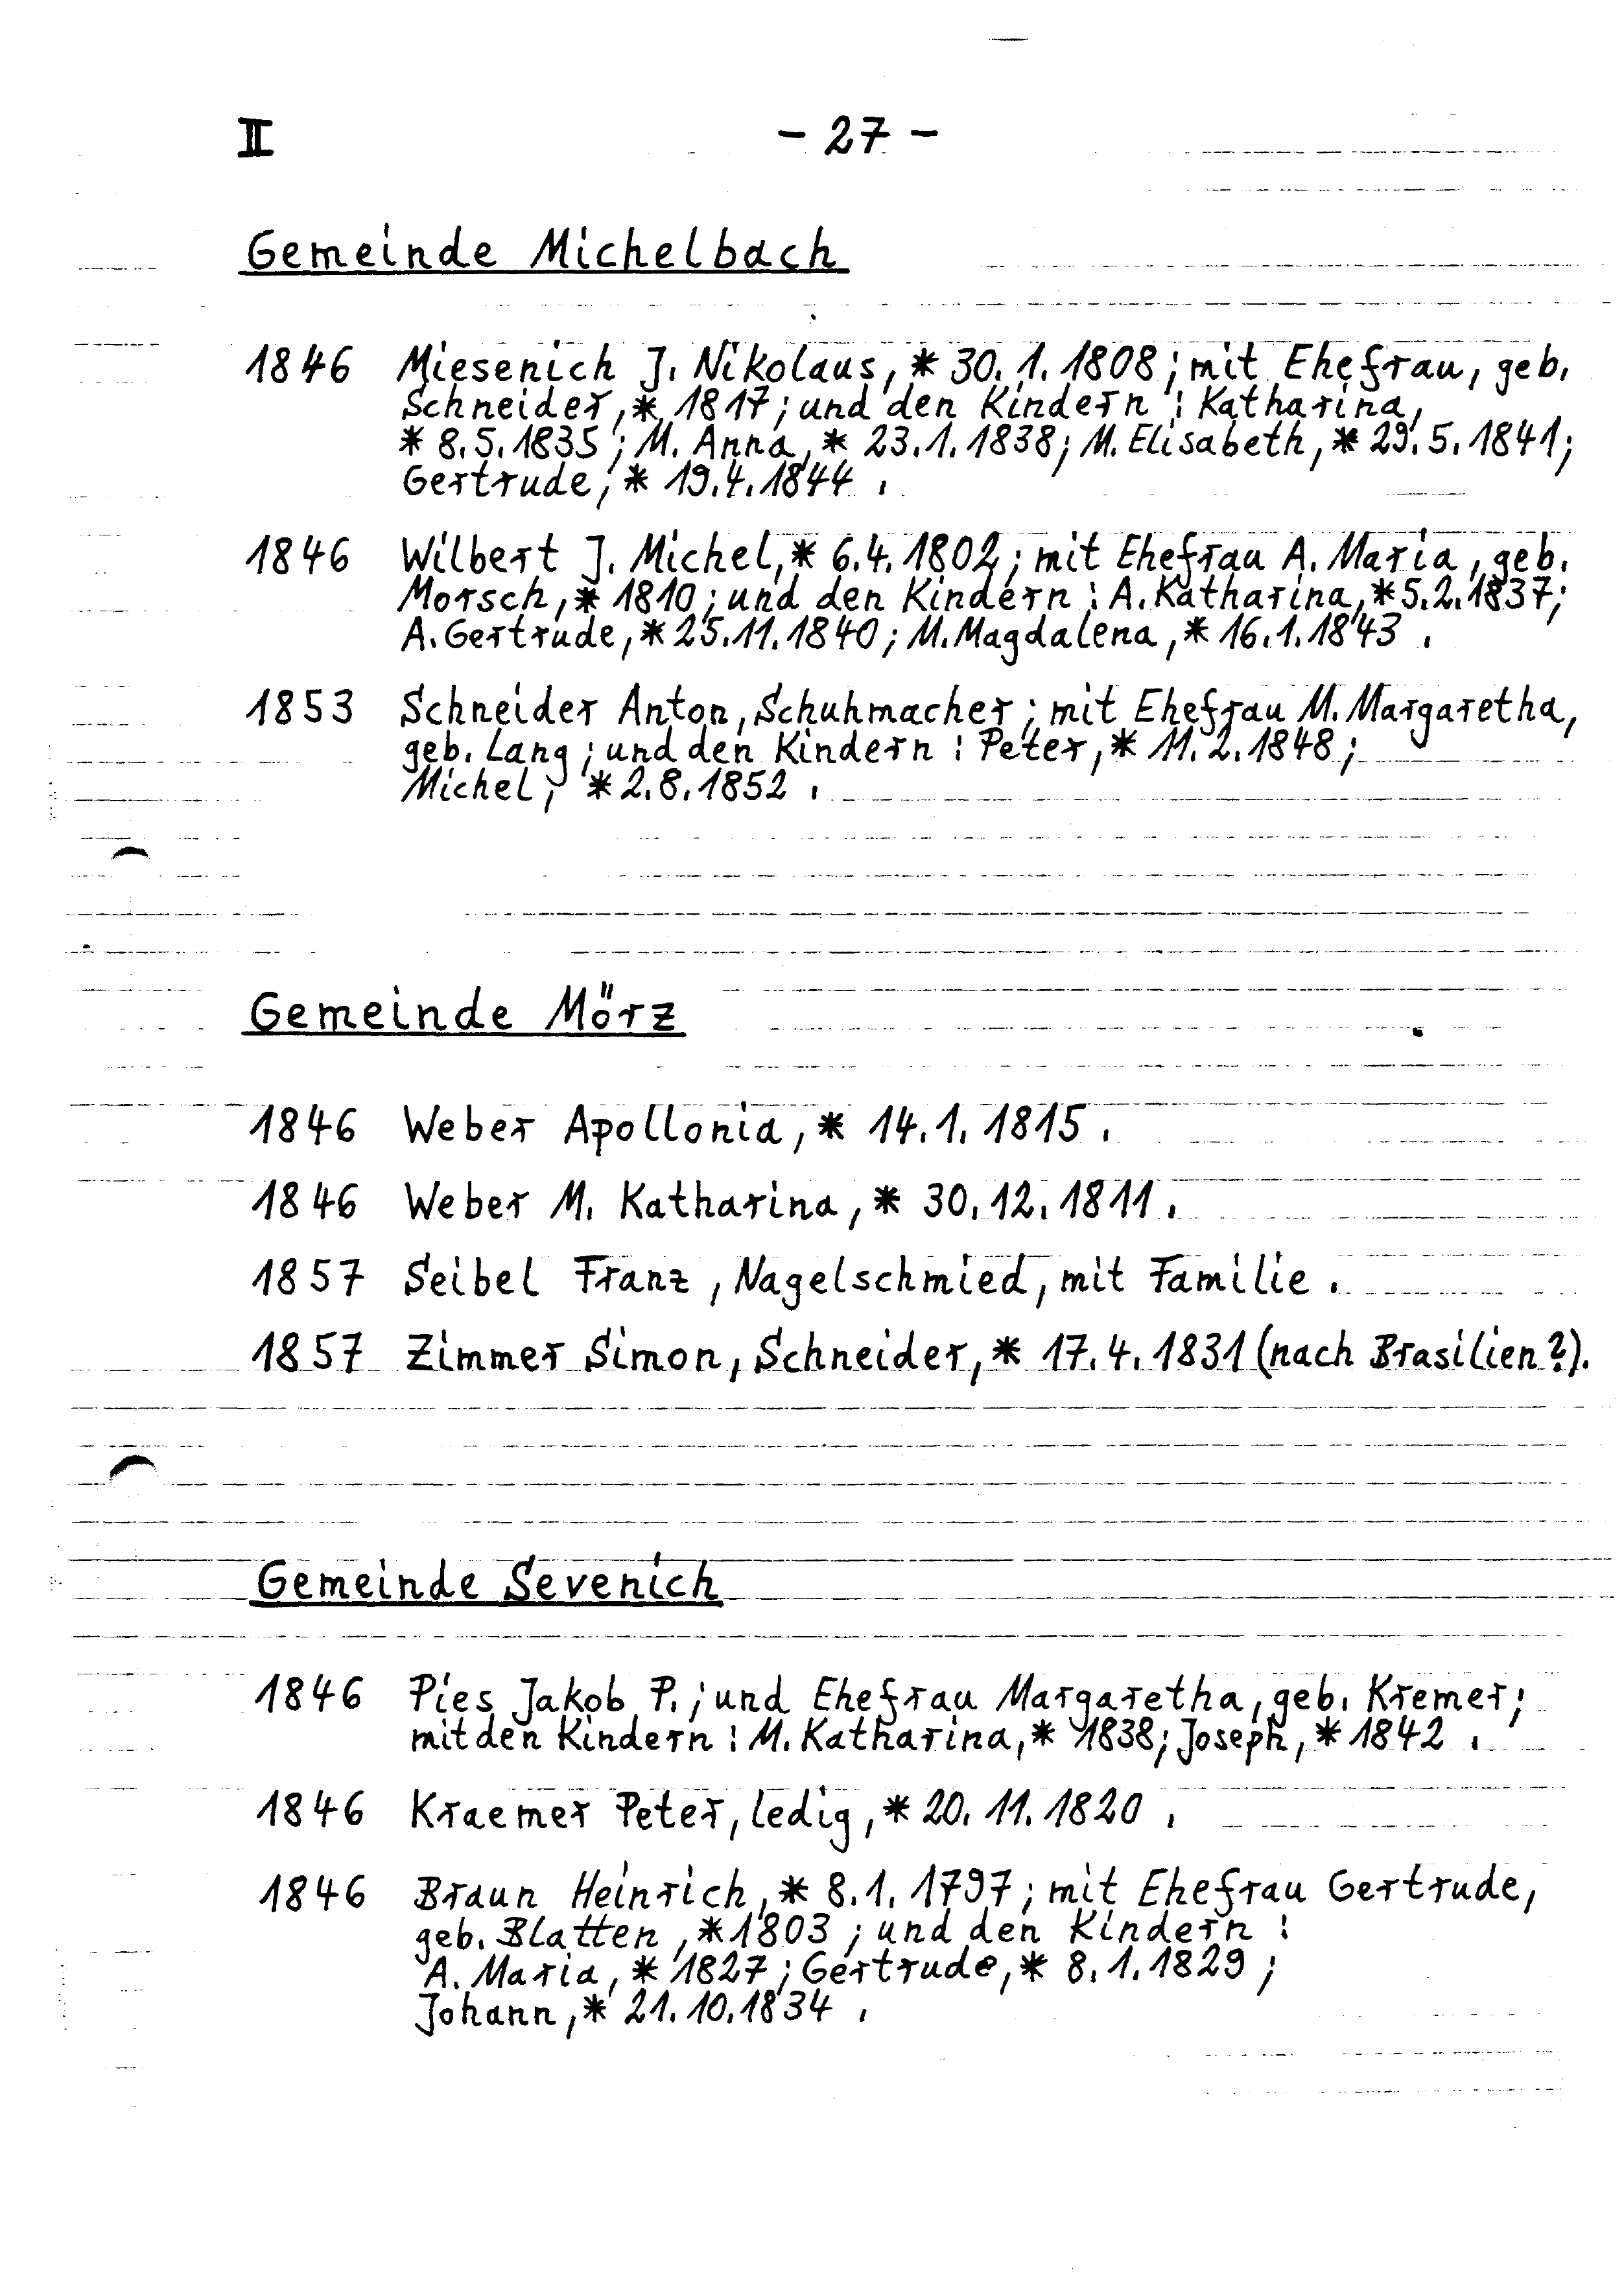 II - 27 -
Gemeinde Michelbach
1846 Miesenich J. Nikolaus, * 30.1.1808; mit Ehefrau, geb.
Schneider, * 1817; und den Kindern: Katharina,
* 8.5.1835; M. Anna, * 23.1.1838; M. Elisabeth, * 29.5.1841;
Gertrude, * 19.4.1844.
1846 Wilbert J. Michel, * 6.4.1802; mit Ehefrau A. Maria, geb.
Morsch, * 1810; und den Kindern: A. Katharina, * 5.2.1837;
A. Gertrude, * 25.11.1840; M. Magdalena, * 16.1.1843.
1853 Schneider Anton, Schuhmacher; mit Ehefrau M. Margaretha,
geb. Lang; und den Kindern: Peter, * 11.2.1848;
Michel, * 2.8.1852.
Gemeinde Mörz
1846 Weber Apollonia, * 14.1.1815.
1846 Weber M. Katharina, * 30.12.1811.
1857 Seibel Franz, Nagelschmied, mit Familie.
1857 Zimmer Simon, Schneider, * 17.4.1831 (nach Brasilien?).
Gemeinde Sevenich
1846 Pies Jakob P.; und Ehefrau Margaretha, geb. Kremer;
mit den Kindern: M. Katharina, * 1838; Joseph, * 1842.
1846 Kraemer Peter, ledig, * 20.11.1820.
1846 Braun Heinrich, * 8.1.1797; mit Ehefrau Gertrude,
geb. Blatten, * 1803; und den Kindern:
A. Maria, * 1827; Gertrude, * 8.1.1829;
Johann, * 21.10.1834.